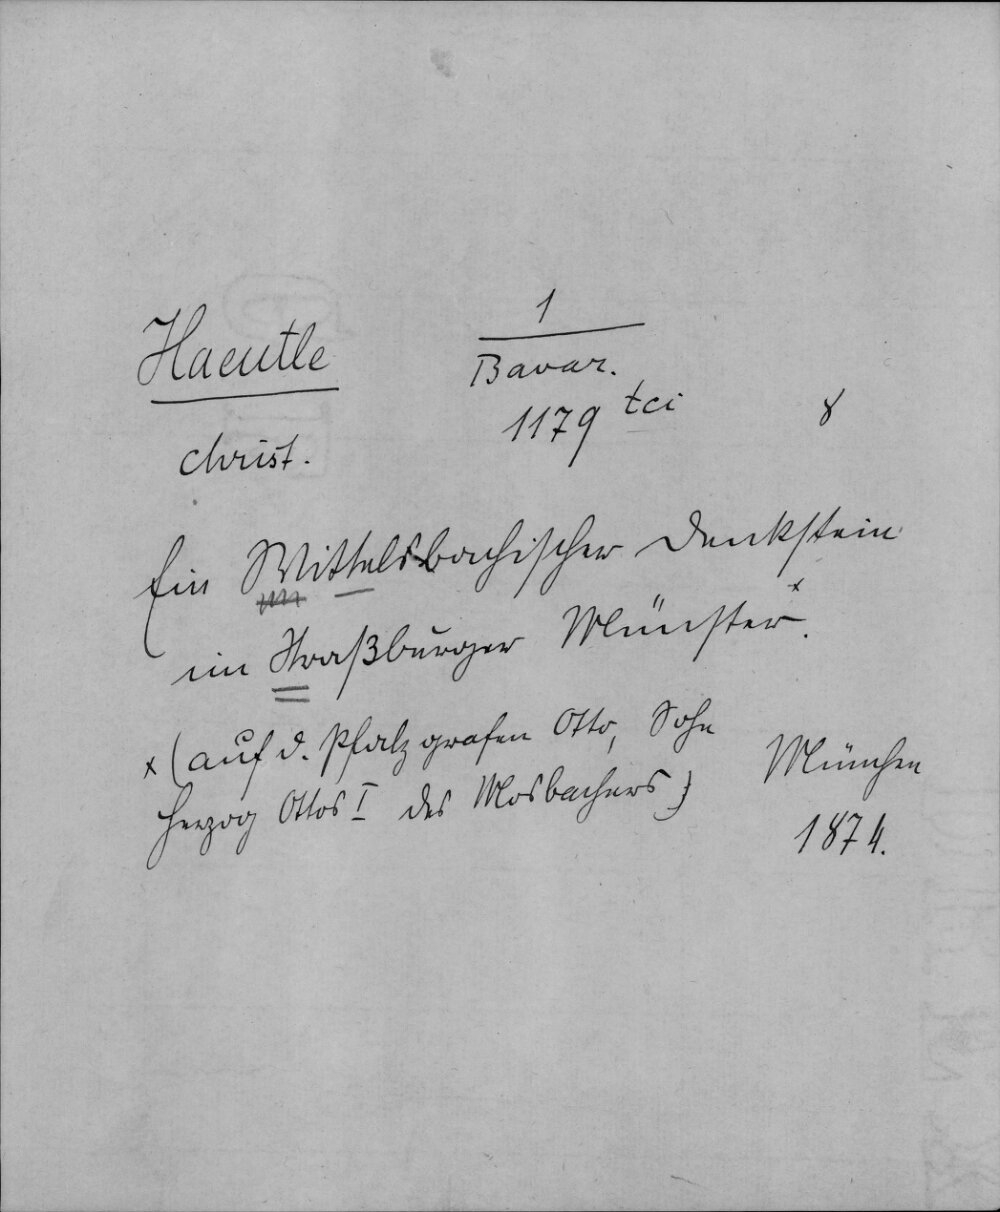 1
Haeutle Bavar.
1179 tci 8
Christ.
Ein Wittelsbachischer Denkstein
im Straßburger Münster. x
x (auf d. Pfalzgrafen Otto, Sohn
Herzog Ottos I des Mosbachers)
München
1874.